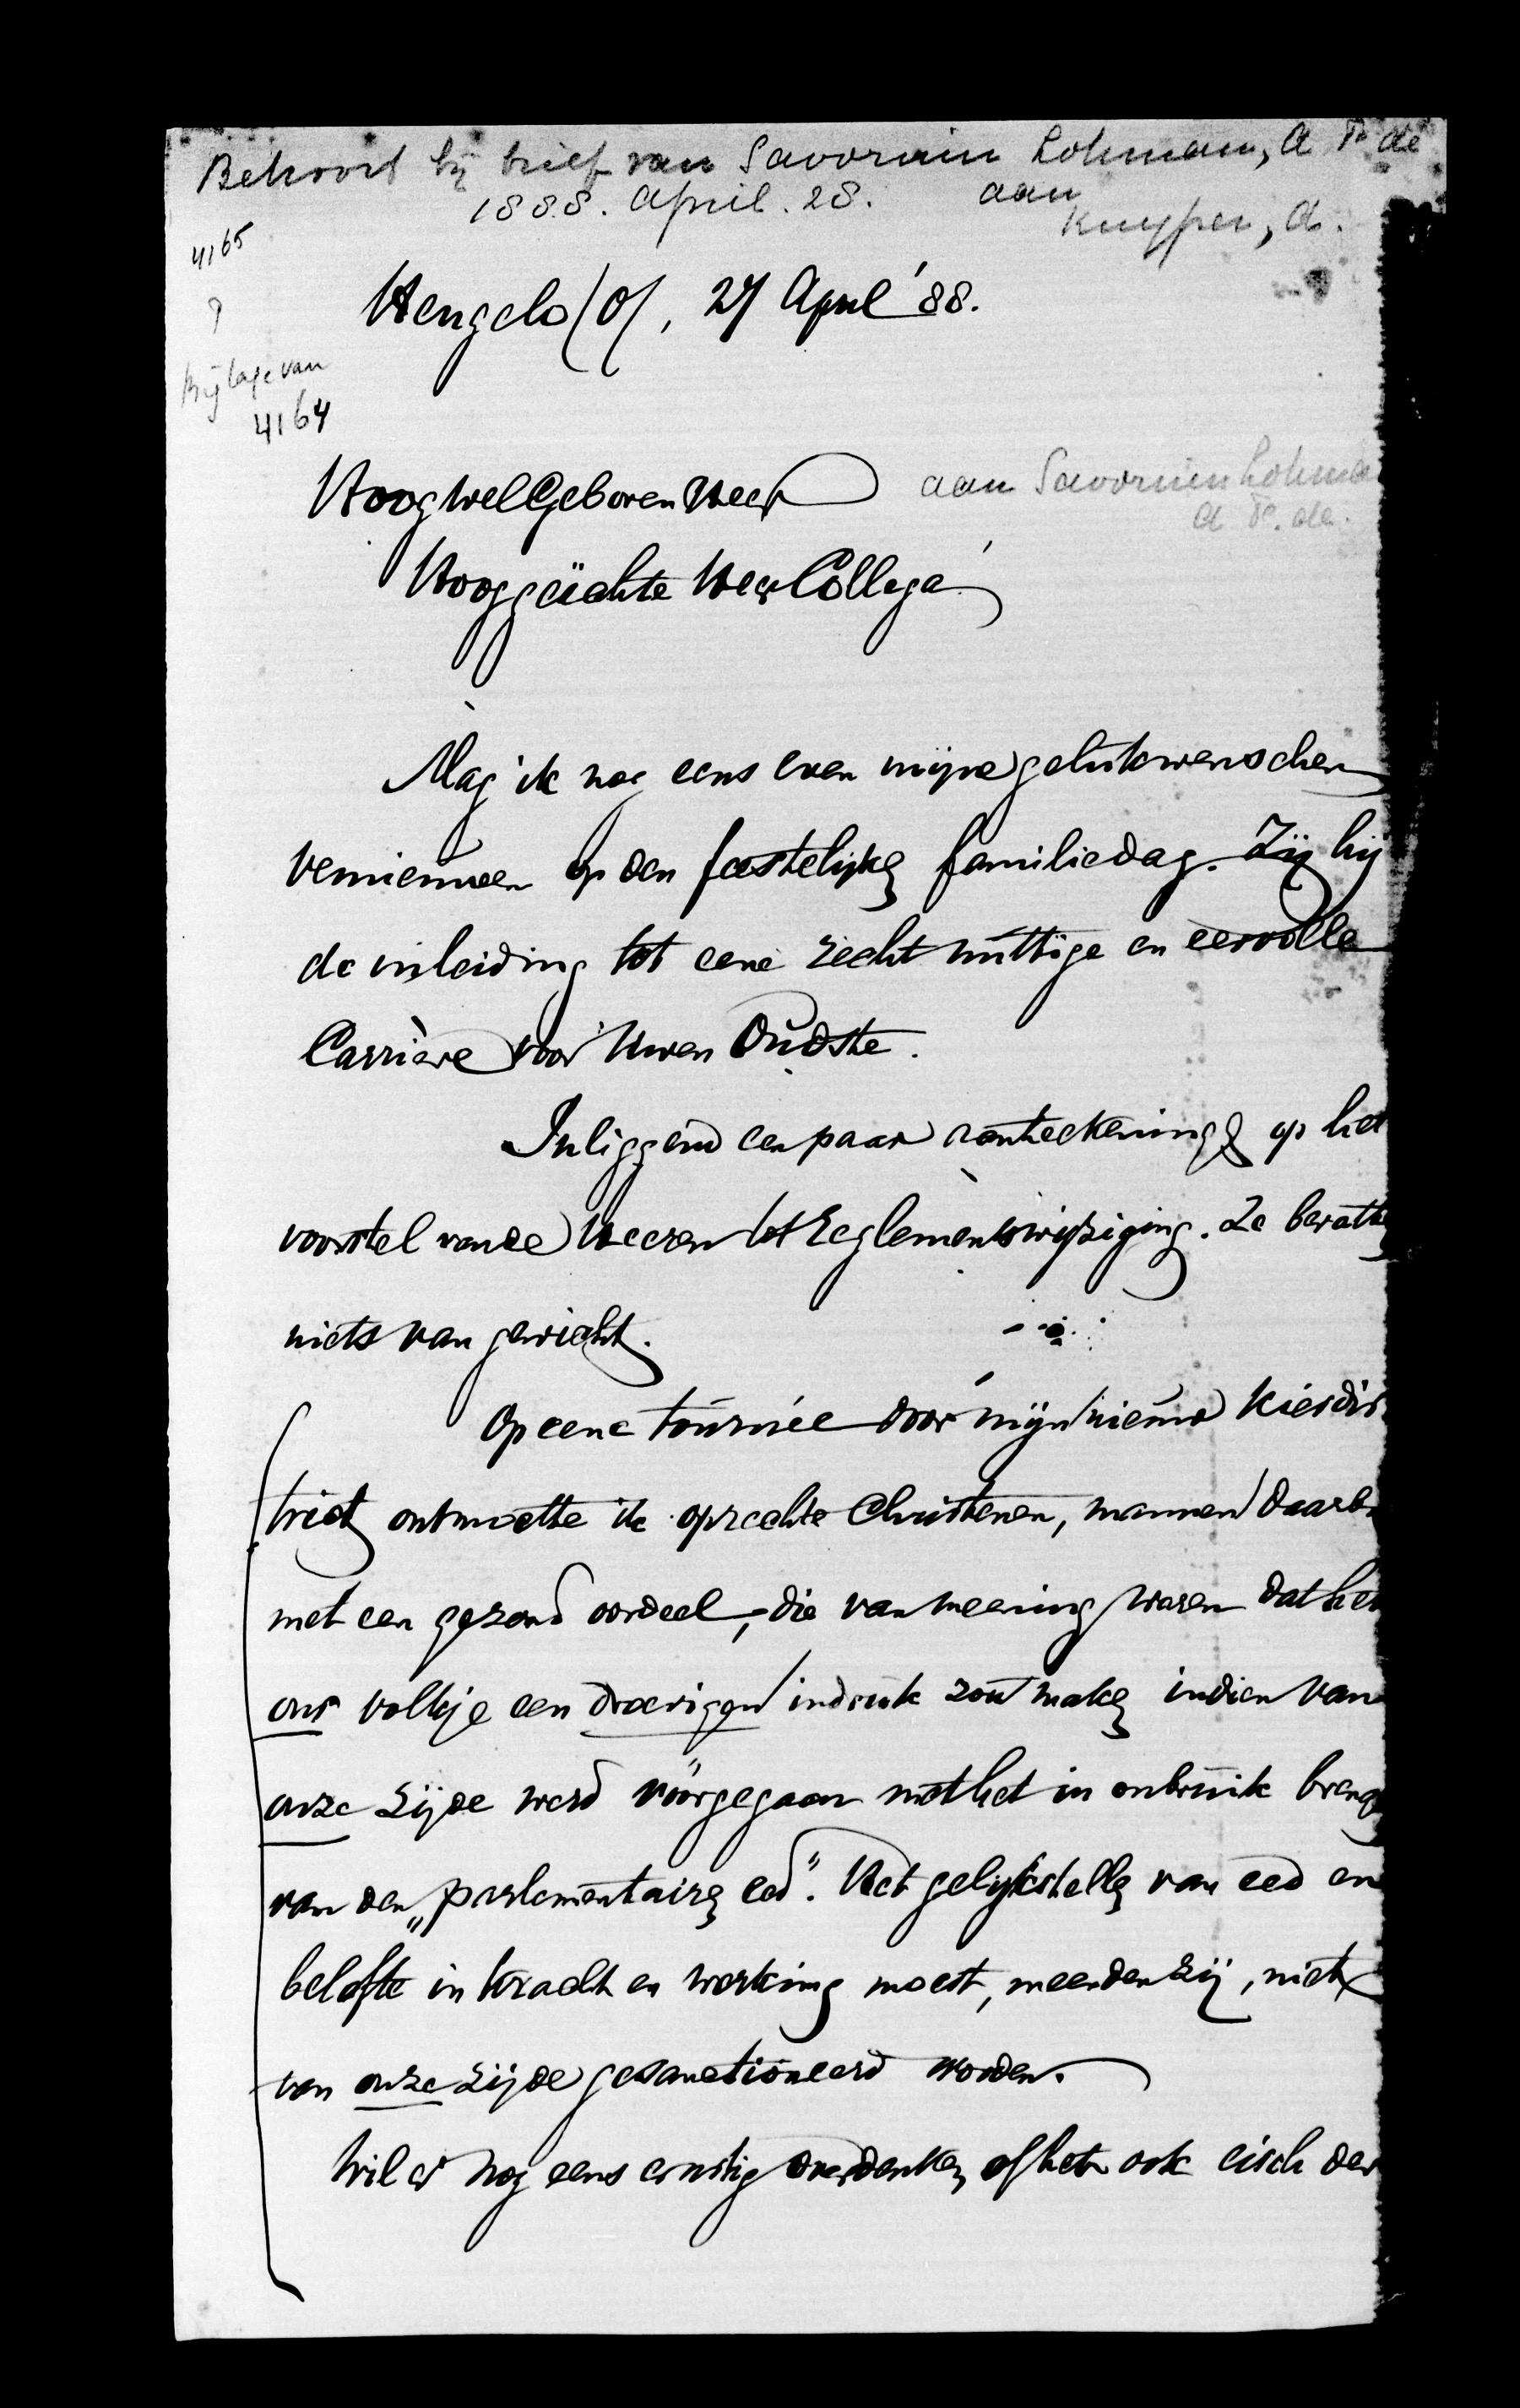 Behoort bij brief van Savornin Lohman, A F de
1888. April. 28. aan
Kuyper, A.
4165
?
Bijlage van
4164
Hengelo (O), 27 April '88.
HoogWelGeboren Heer
aan Savornin Lohma
A F. de.
Hooggeächte Heer Collega!
Mag ik nog eens even mijne gelukwenschen
vernieuwen op den feestelijken familiedag. Zij hij
de inleiding tot eene recht nuttige en eervolle
Carrière voor Uwen Oudste.
Inliggend een paar aanteekeningen op het
voorstel van de Heeren tot Reglementswijziging. Ze bevatten
niets van gewicht.
Op eene tournée door mijn nieuw Kiesdis
trict ontmoette ik oprechte Christenen, mannen daarb
met een gezond oordeel, die van meening waren dat het
ons volkje een droevigen indruk zou maken indien van
onze zijde werd vóórgegaan met het in onbruik breng
van den „parlementairen eed". Het gelijkstellen van eed en
belofte in kracht en werking moest, meenden zij, niet
van onze zijde gesanctioneerd worden.
Wil er nog eens ernstig overdenken, of het ook eisch der